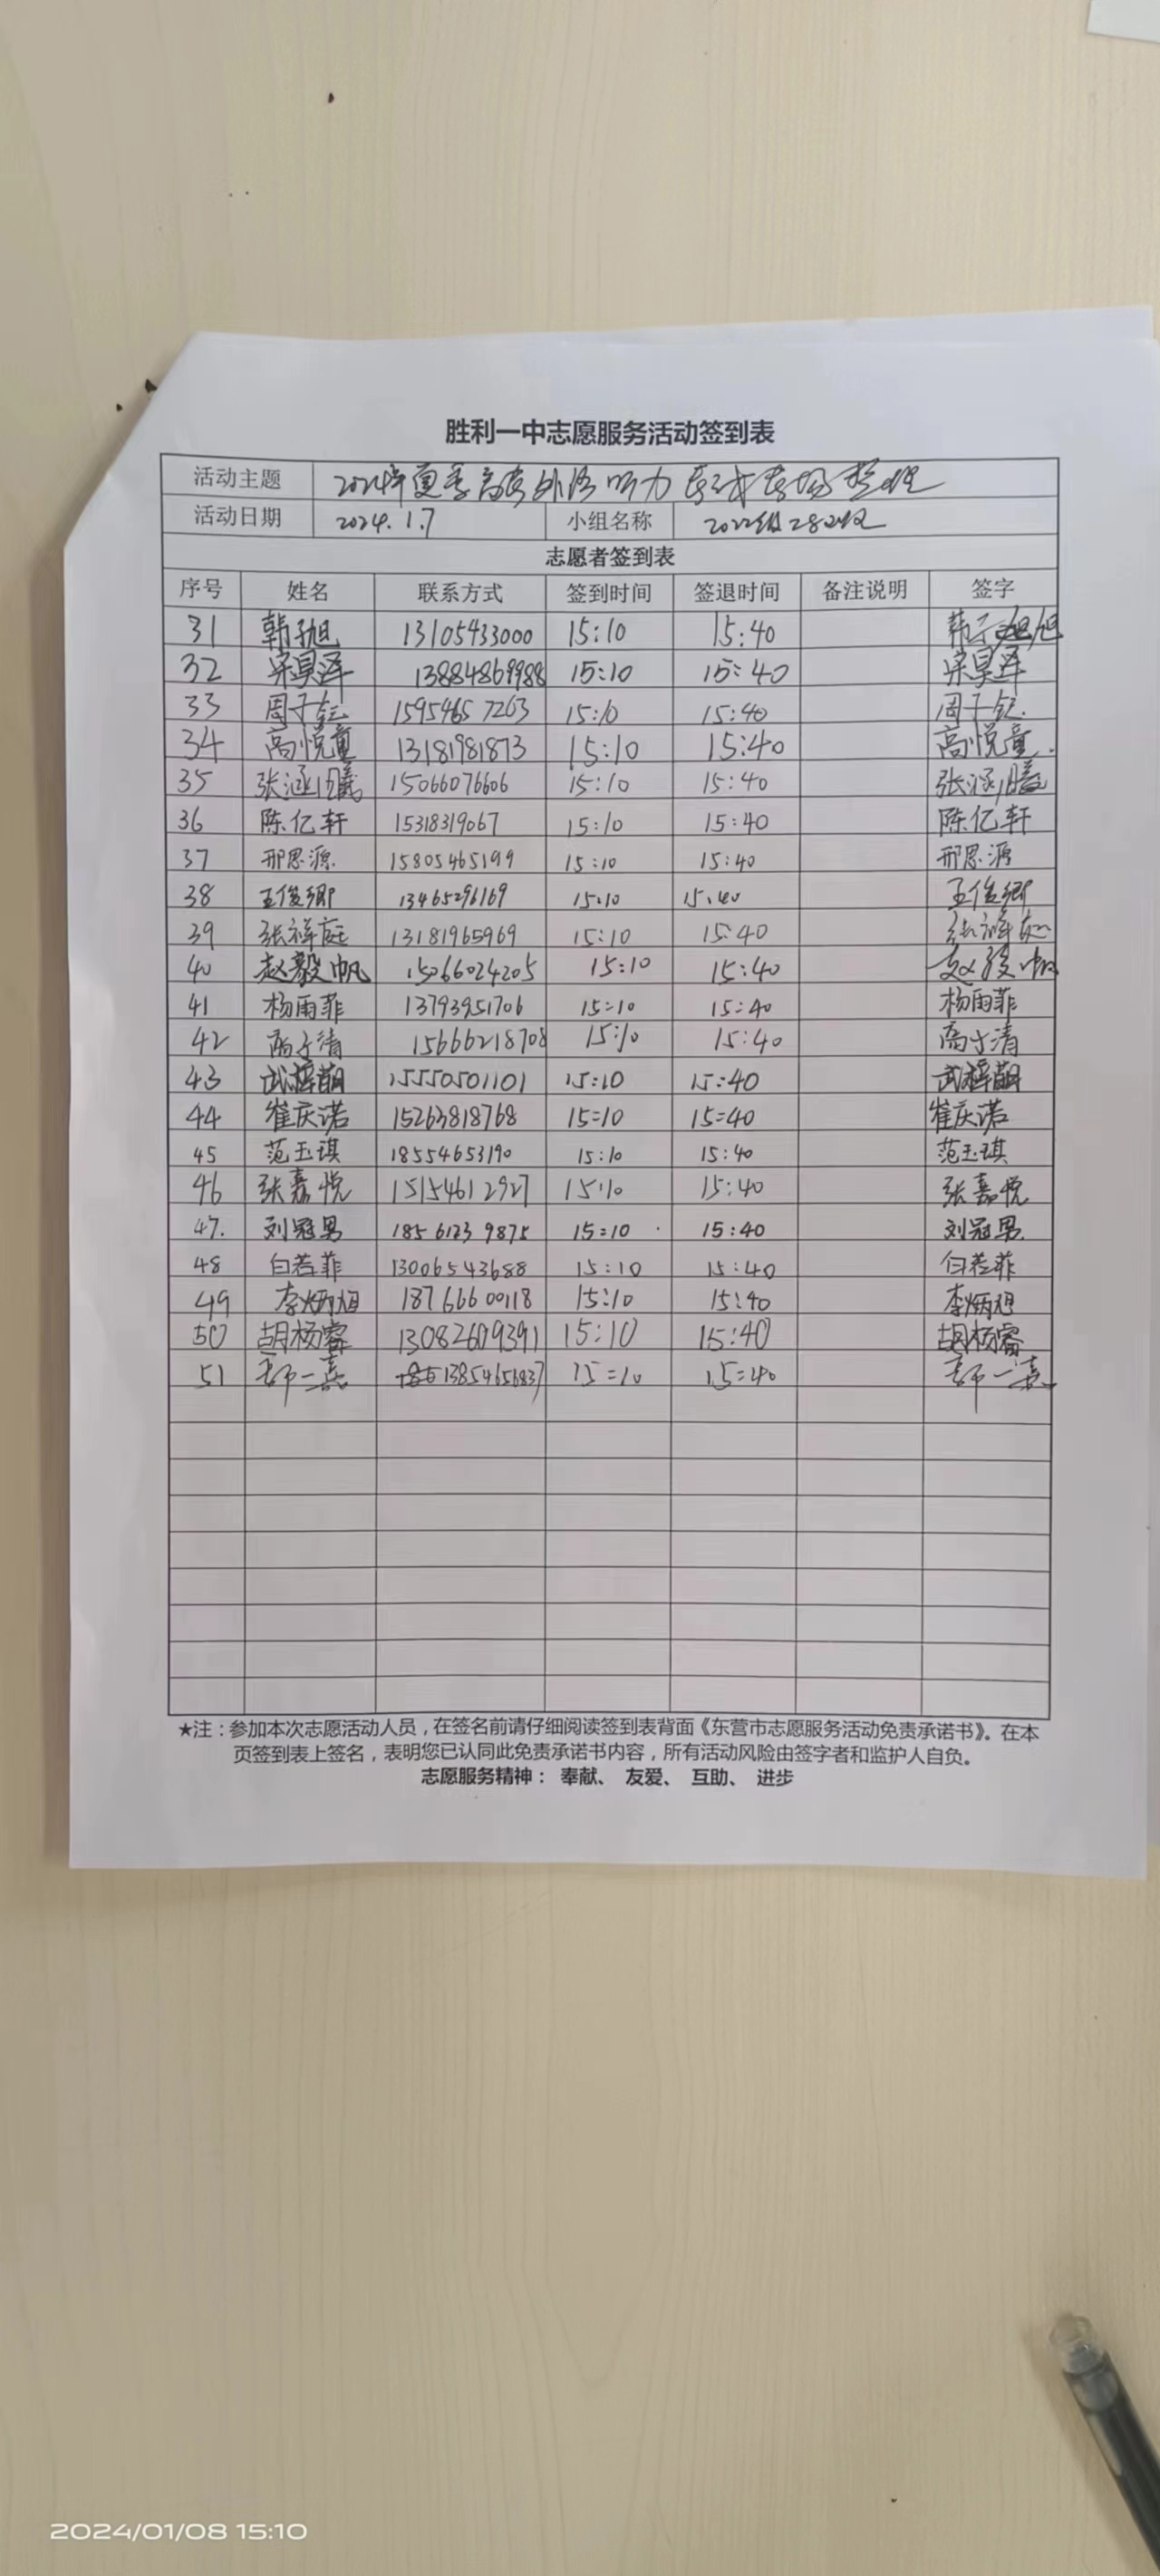 胜利一中志愿服务活动签到表
活动主题 2024年夏季高考外语听力考试考场整理
活动日期 2024.1.7 小组名称 2022级282班
志愿者签到表
序号 姓名 联系方式 签到时间 签退时间 备注说明 签字
31 韩子旭 13105433000 15:10 15:40 韩子旭
32 宋昊泽 13884869988 15:10 15:40 宋昊泽
33 周子钰 15954657263 15:10 15:40 周子钰
34 高悦童 13181981873 15:10 15:40 高悦童.
35 张涵曦 15066076606 15:10 15:40 张涵曦
36 陈亿轩 15318319067 15:10 15:40 陈亿轩
37 邢思源 15805465199 15:10 15:40 邢思源
38 王俊卿 13465296169 15:10 15:40 王俊卿
39 张祥庭 13181965969 15:10 15:40 张祥庭
40 赵毅帆 15066024205 15:10 15:40 赵毅帆
41 杨雨菲 13793951706 15:10 15:40 杨雨菲
42 高子清 15666218708 15:10 15:40 高子清
43 武梓萌 15550501101 15:10 15:40 武梓萌
44 崔庆诺 15263818768 15:10 15:40 崔庆诺
45 范玉琪 18554653190 15:10 15:40 范玉琪
46 张嘉悦 15154612927 15:10 15:40 张嘉悦
47. 刘冠男 18561239875 15:10 15:40 刘冠男.
48 白若菲 13006543688 15:10 15:40 白若菲
49 李炳旭 18766600118 15:10 15:40 李炳旭
50 胡杨睿 13082609391 15:10 15:40 胡杨睿
51 13854656837 15:10 15:40
★注：参加本次志愿活动人员，在签名前请仔细阅读签到表背面《东营市志愿服务活动免责承诺书》。在本
页签到表上签名，表明您已认同此免责承诺书内容，所有活动风险由签字者和监护人自负。
志愿服务精神： 奉献、 友爱、 互助、 进步
2024/01/08 15:10